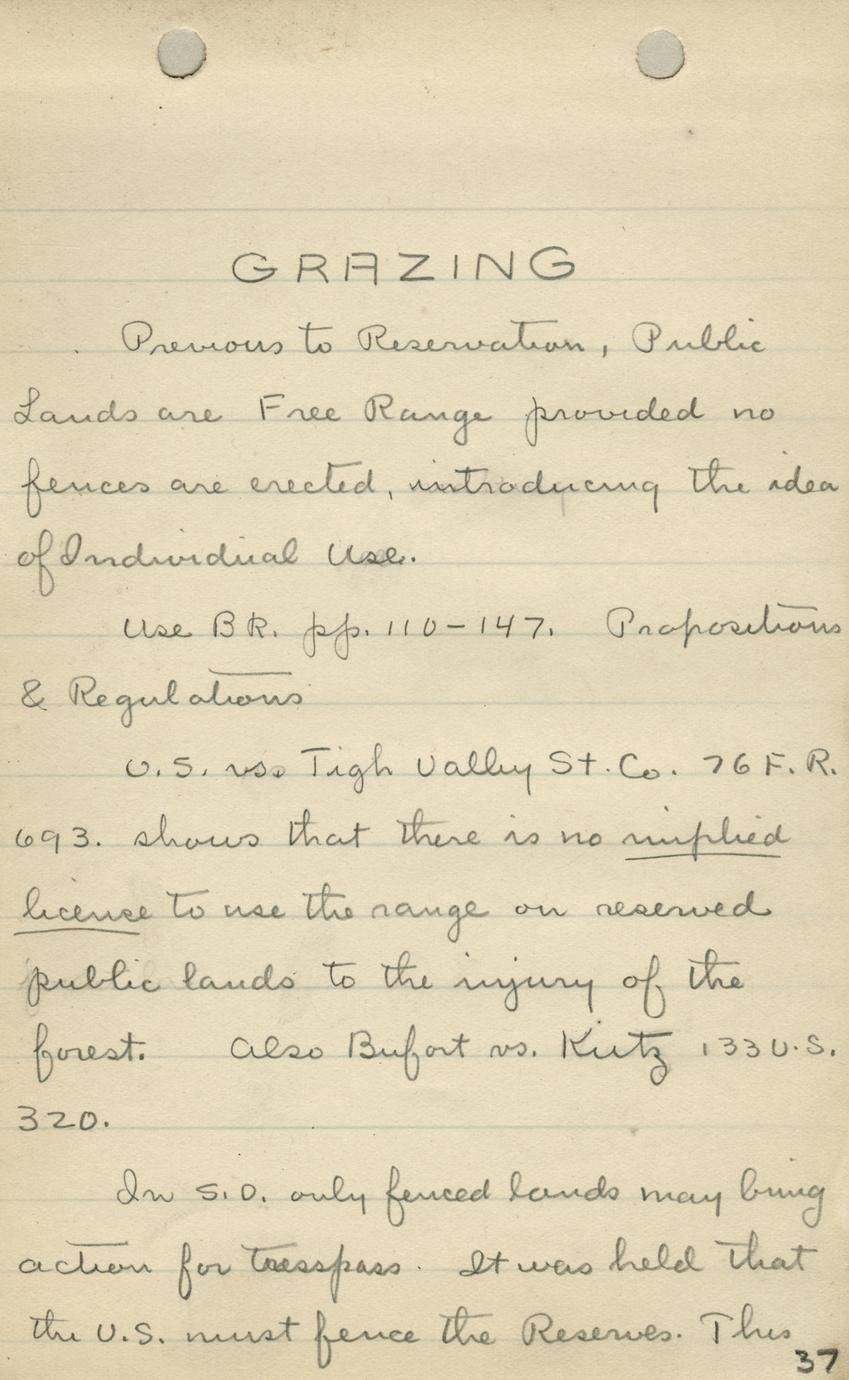 GRAZING
Previous to Reservation, Public
Lands are Free Range provided no
fences are erected, introducing the idea
of Individual Use.
Use BK. pp. 110-147. Propositions
& Regulations
U.S. vs. Tigh Valley St. Co. 76 F.R.
693. shows that there is no implied
license to use the range on reserved
public lands to the injury of the
forest. Also Bufort vs. Kutz 133 U.S.
320.
In S.D. only fenced lands may bring
action for tresspass. It was held that
the U.S. must fence the Reserves. This
37